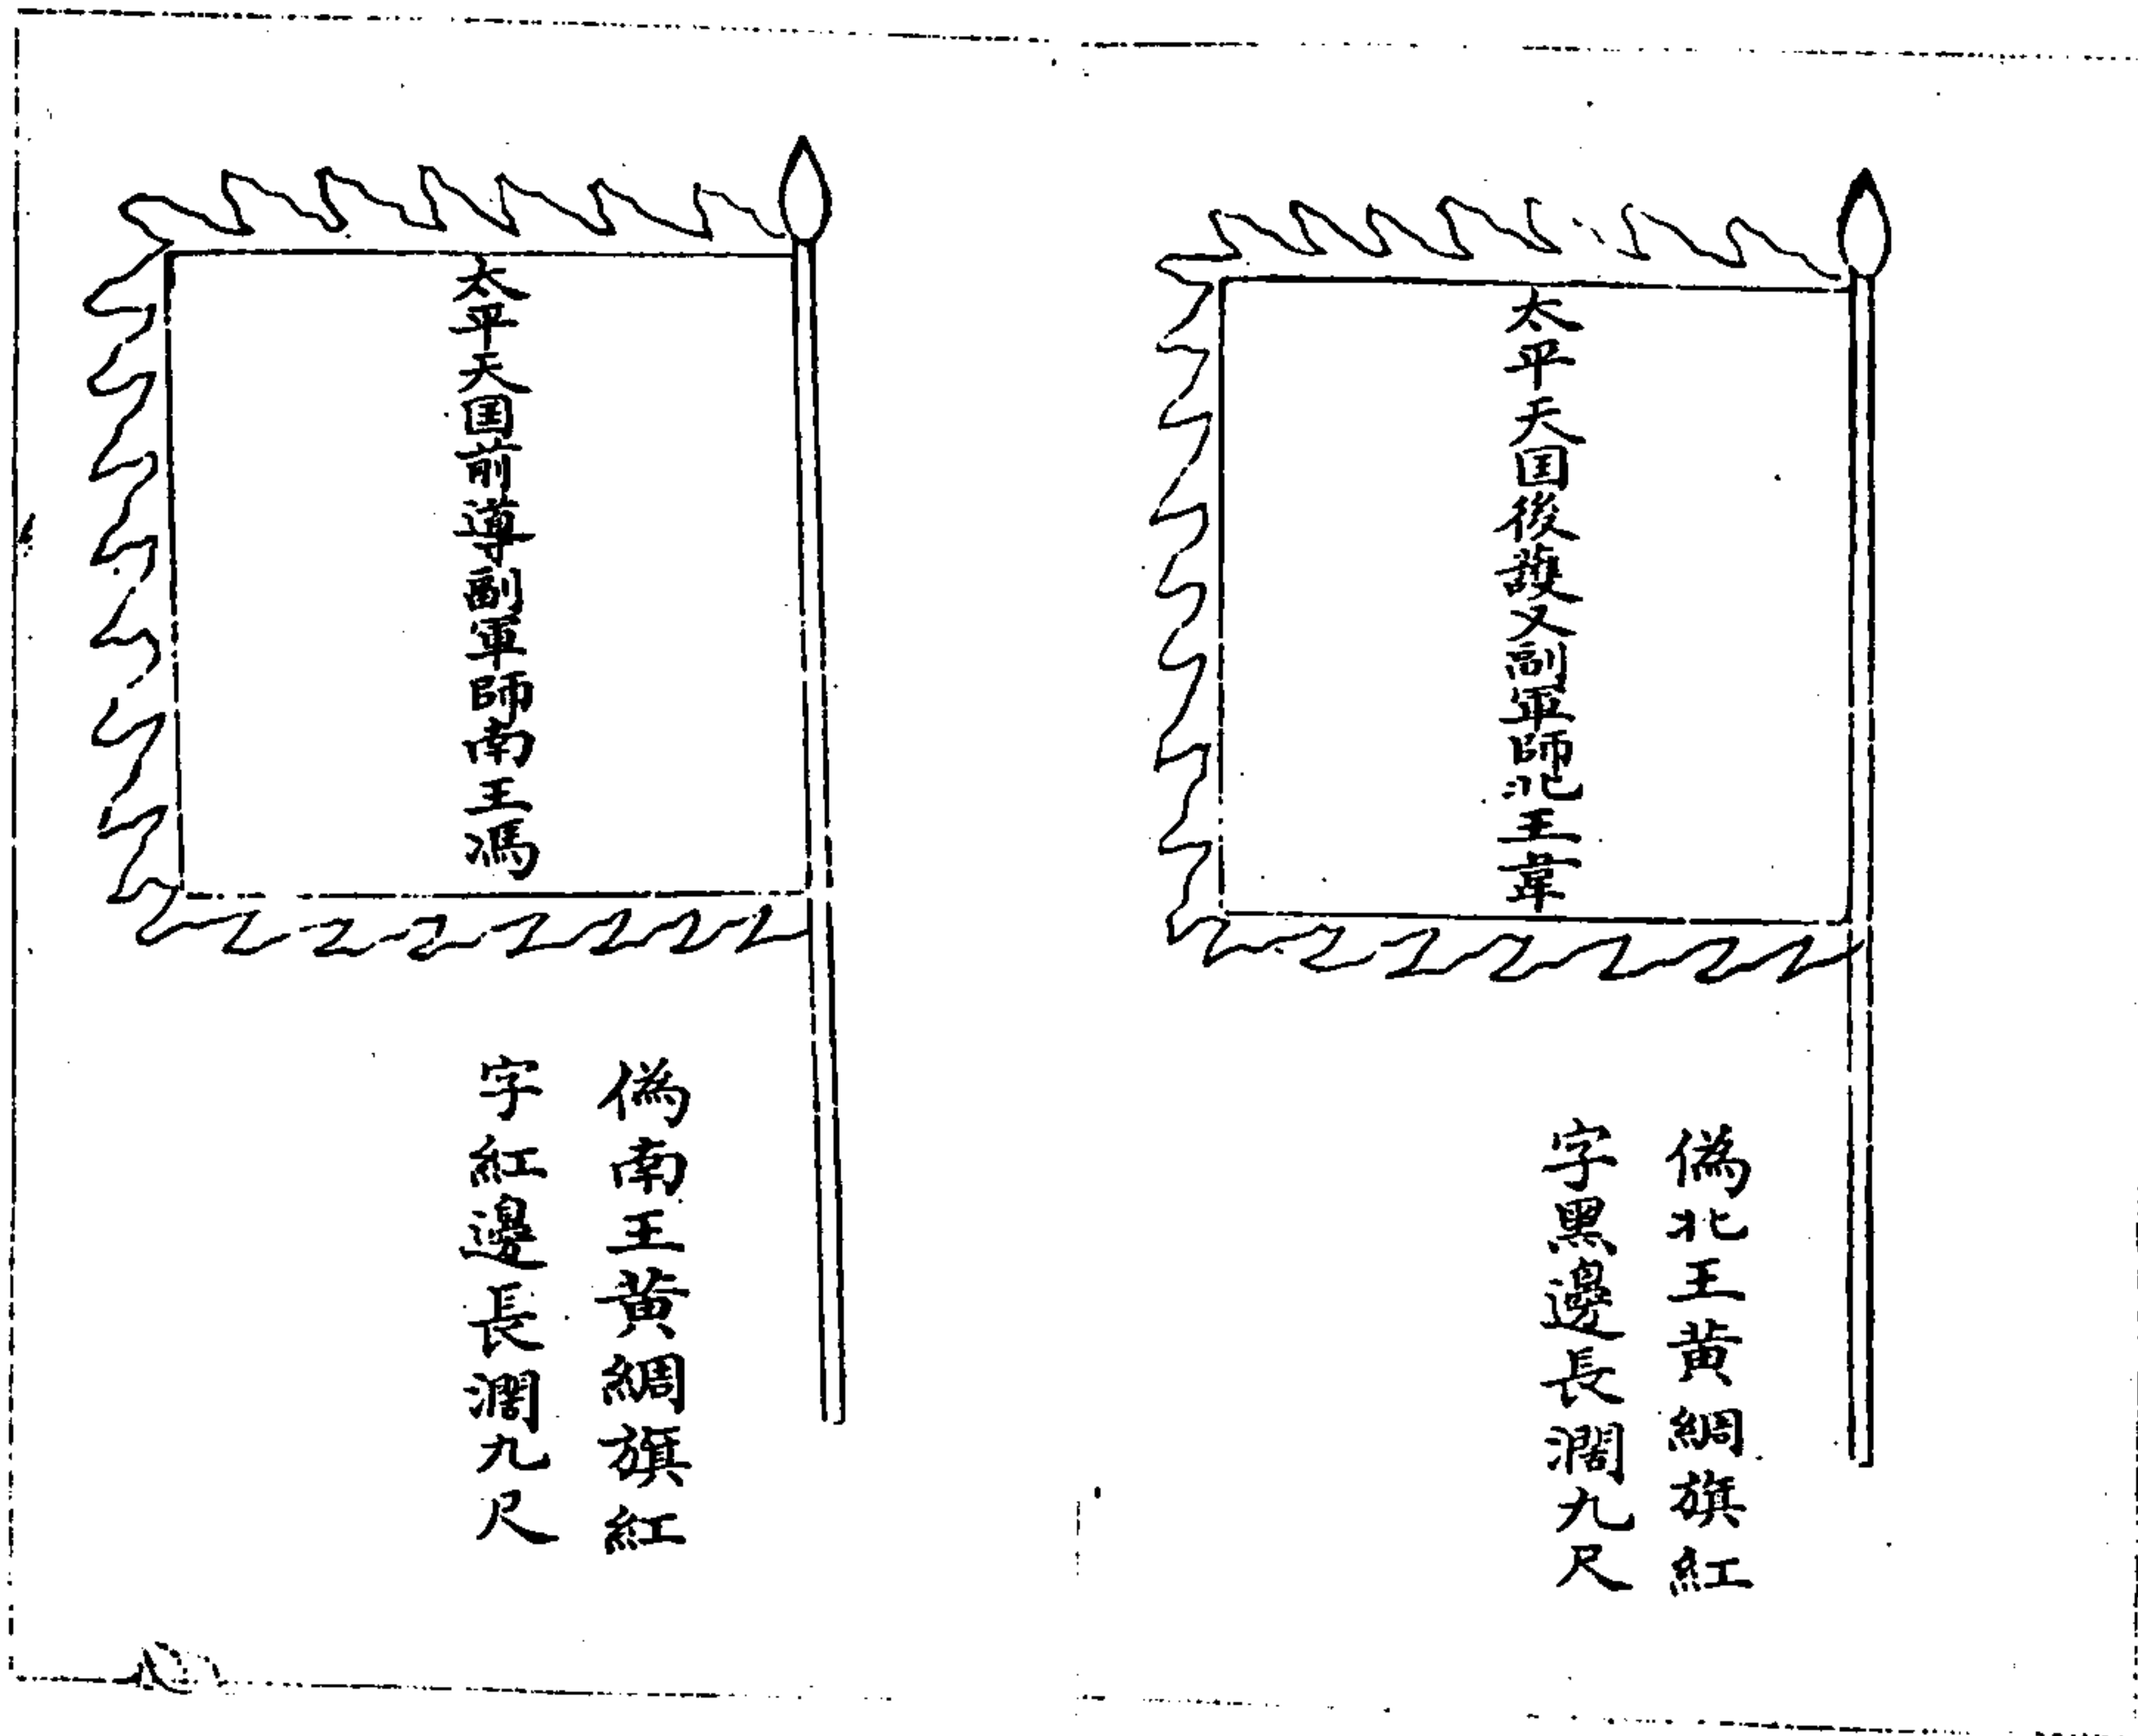 太平天囯後護又副軍師北王韋
偽北王黃綢旗紅
字黑邊長濶九尺
太平天囯前導副軍師南王馮
偽南王黃綢旗紅
字紅邊長濶九尺